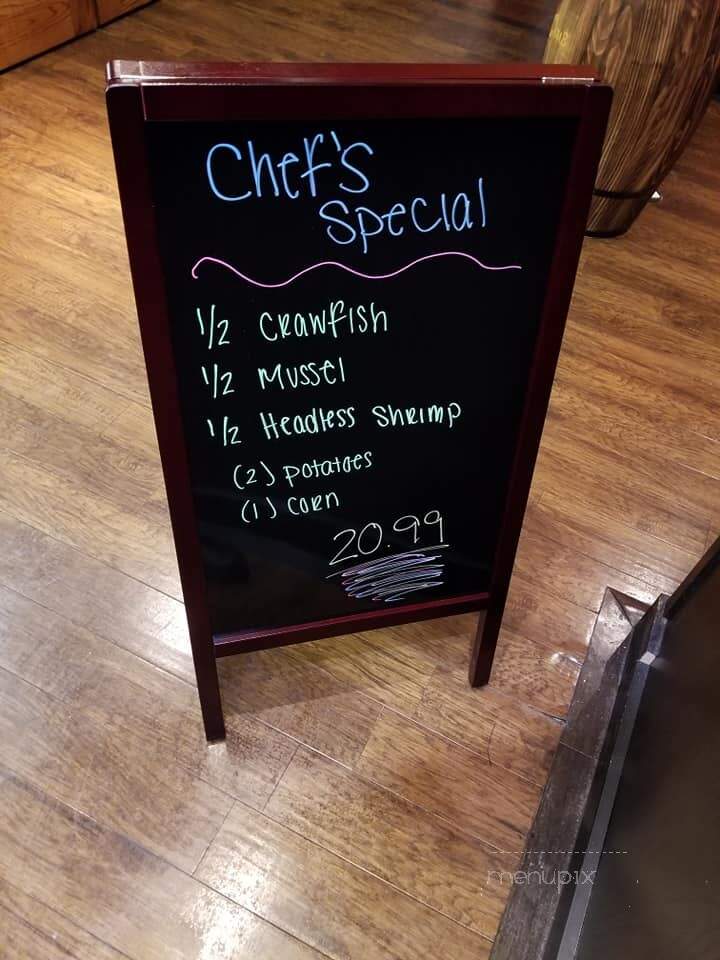 Chef's
Special
1/2 Crawfish
1/2 Mussel
1/2 Headless Shrimp
(2) potatoes
(1) Corn
20.99
menupix